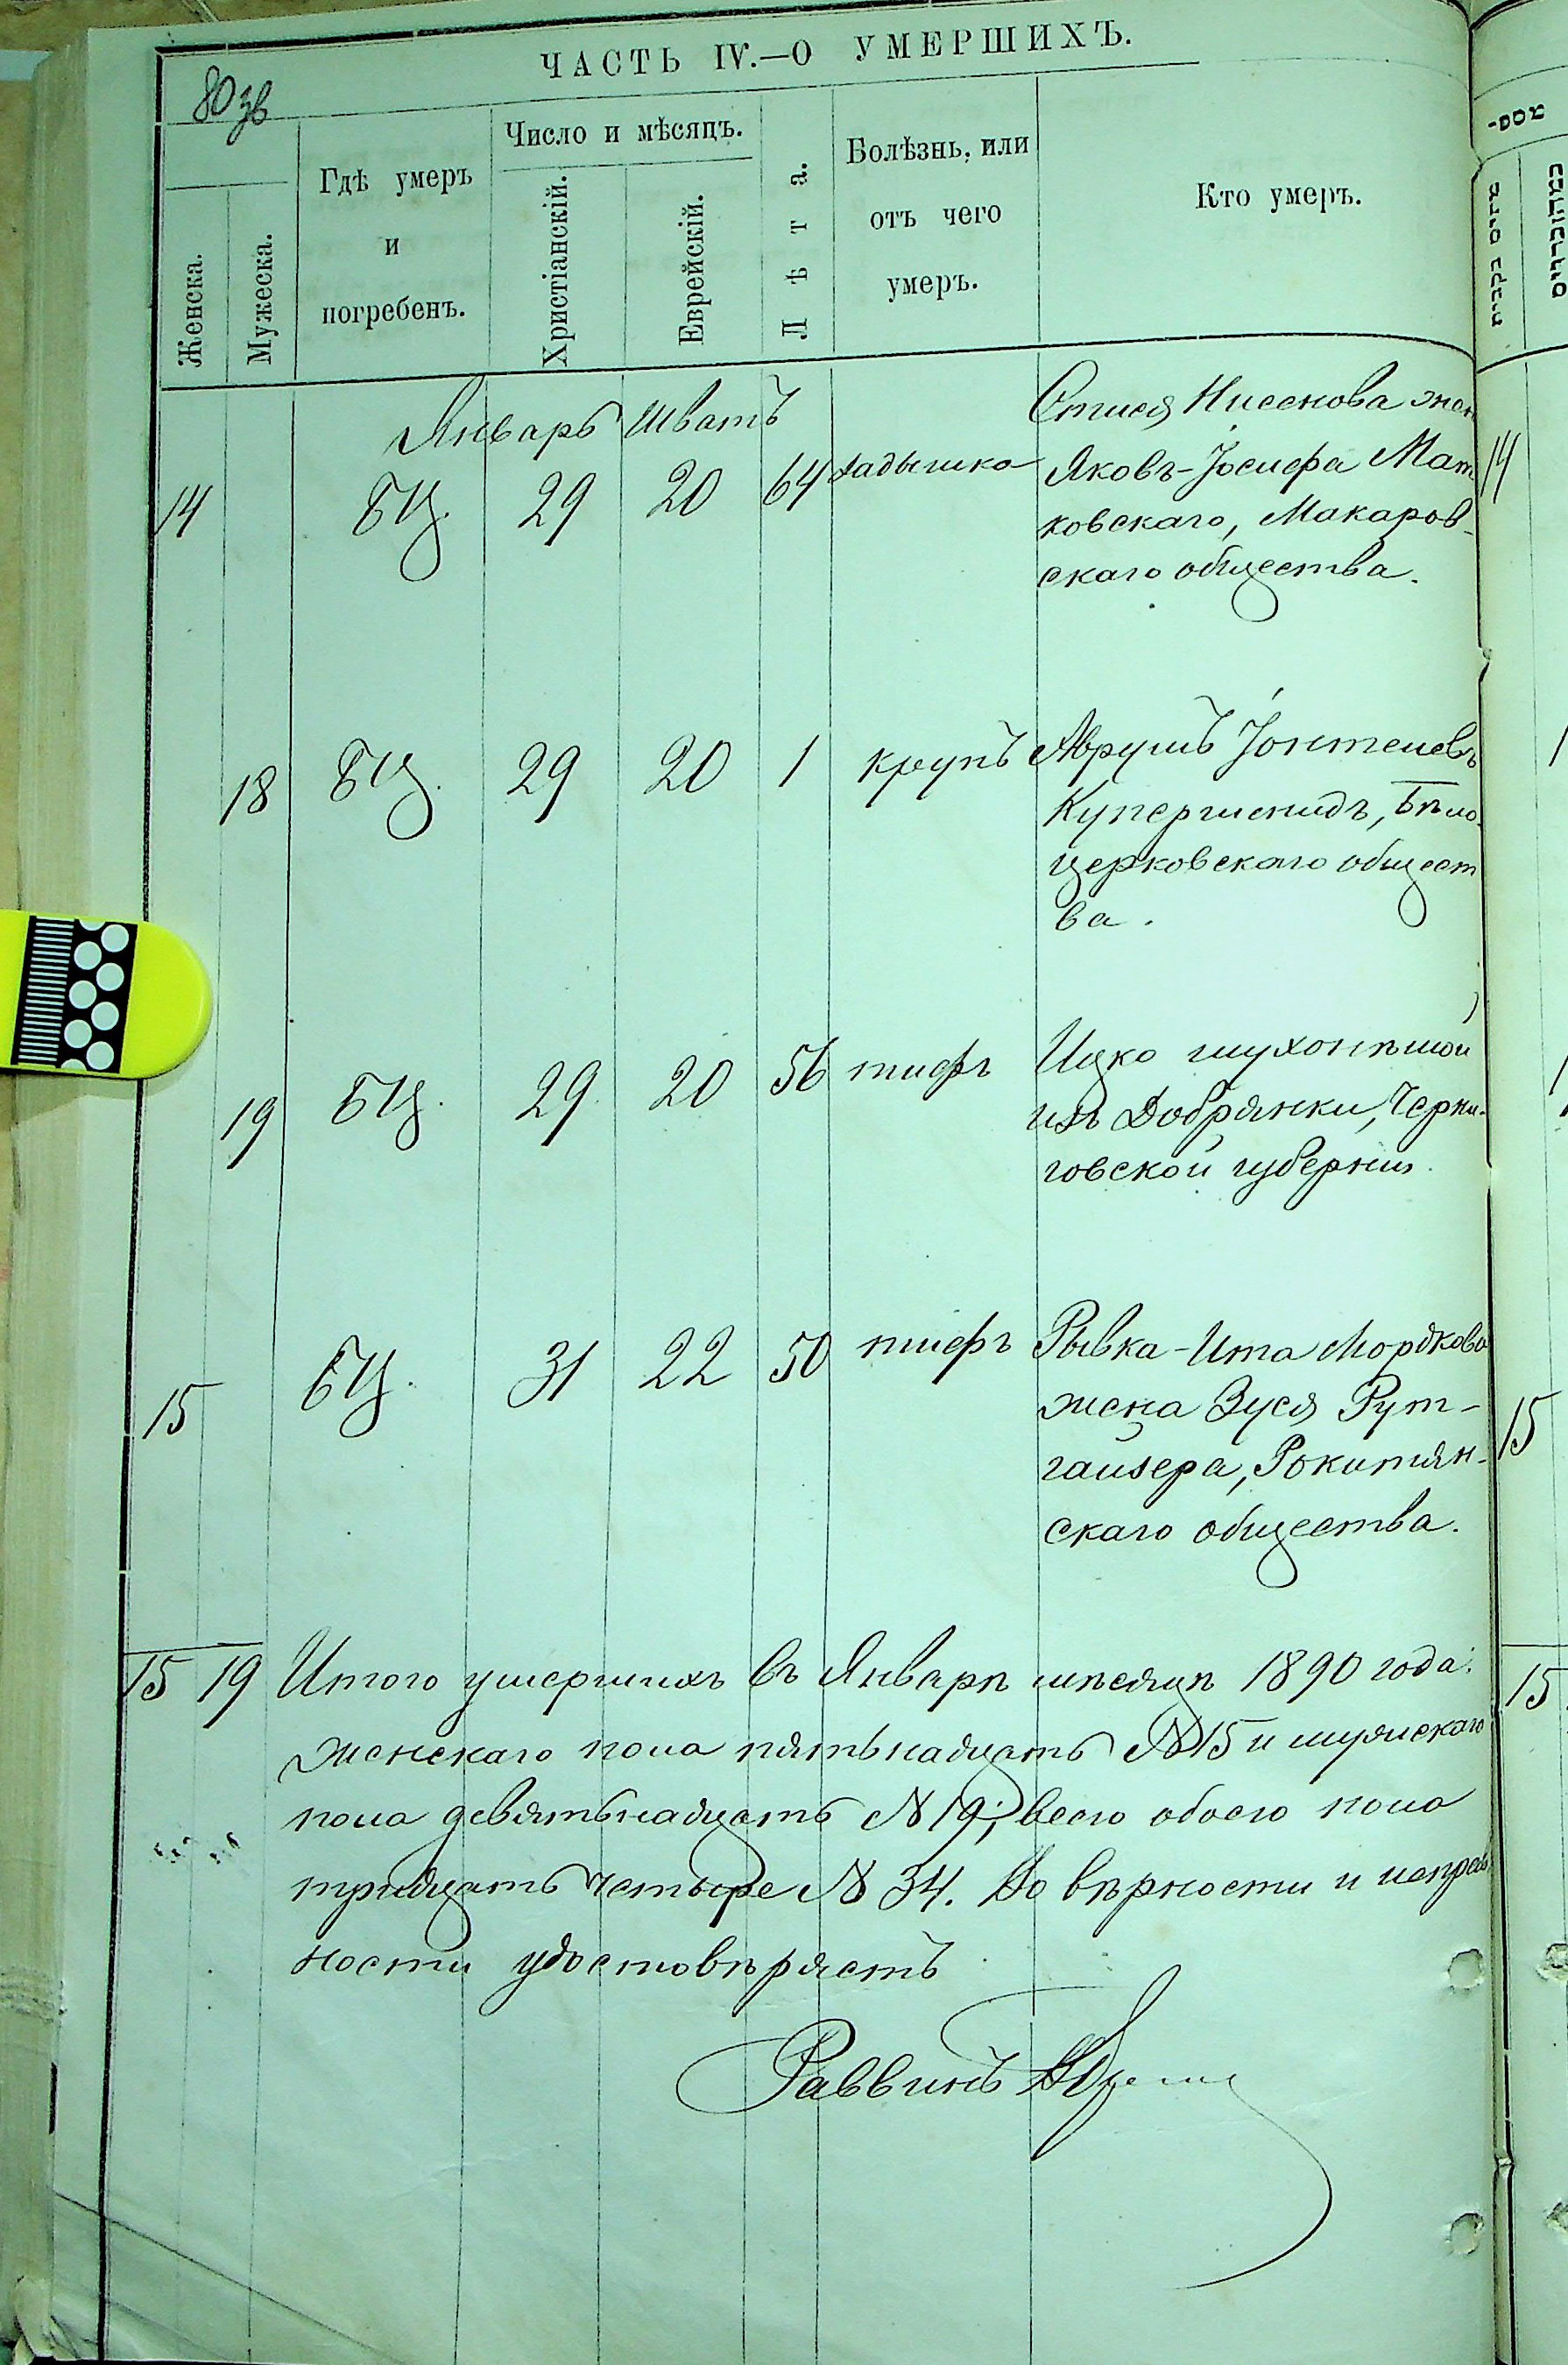 ЧАСТЬ IV.—О УМЕРШИХЪ.
80 зв
Женска.
Мужеска.
Гдѣ умеръ
и
погребенъ.
Число и мѣсяцъ.
Христіанскій.
Еврейскій.
Лѣта.
Болѣзнь, или
отъ чего
умеръ.
Кто умеръ.
Январь Шватъ
14 БЦ. 29 20 64 адышка
Нисенова жен
Яковъ-Іосифа Мат
ковскаго, Макаров-
скаго общества.
14
18 БЦ. 29 20 1 крупъ
Аврумъ Іонтелевъ
Купершмидъ, Бѣло-
церковскаго общест
ва.
19 БЦ. 29 20 56 тифъ
Ицко глухонѣмой
изъ Добрянки, Черни-
говской губерніи.
15 БЦ. 31 22 50 тифъ
Рывка-Ита Мордкова
жена Зуся Рут-
гайзера, Рокитян-
скаго общества.
15
15 19 Итого умершихъ въ Январѣ мѣсяцѣ 1890 года:
женскаго пола пятьнадцать №15 и мужскаго
пола девятьнадцать №19, всего обоего пола
тридцать четыре № 34. Во вѣрности и исправ
ности удостовѣряетъ
15
Раввинъ